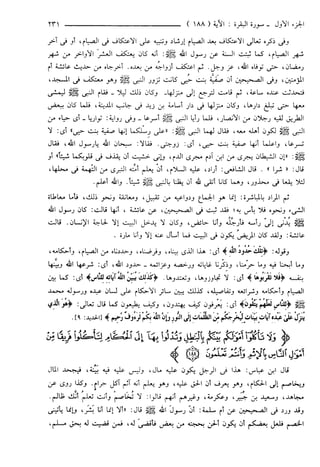 الجزء الأول - سورة البقرة : الآية ( ١٨٨ )
٢٣١
وفي ذكره تعالى الاعتكاف بعد الصيام إرشاد وتنبيه على الاعتكاف في الصيام، أو في آخر
شهر الصيام، كما ثبتت السنة عن رسول الله ﷺ: أنه كان يعتكف العشر الأواخر من شهر
رمضان، حتى توفاه الله، عز وجل. ثم اعتكف أزواجُه من بعده. أخرجاه من حديث عائشة أم
المؤمنين، وفي الصحيحين أن صَفِيَّة بنت حُيي كانت تزور النبي ﷺ وهو معتكف في المسجد،
فتحدثت عنده ساعة، ثم قامت لترجع إلى منزلها- وكان ذلك ليلا - فقام النبي ﷺ ليمشي
معها حتى تبلغ دارها، وكان منزلها في دار أسامة بن زيد في جانب المدينة، فلما كان ببعض
الطريق لقيه رجلان من الأنصار، فلما رأيا النبي ﷺ أسرعا - وفي رواية: تواريا - أي حياء من
النبي ﷺ لكون أهله معه، فقال لهما النبي ﷺ: «على رِسْلكما إنها صفية بنت حيي» أي: لا
تسرعا، واعلما أنها صفية بنت حيي، أي: زوجتي. فقالا: سبحان الله يارسول الله، فقال
ﷺ: «إن الشيطان يجري من ابن آدم مجرى الدم، وإني خشيت أن يقذف في قلوبكما شيئاً» أو
قال: « شرا » . قال الشافعي: أراد، عليه السلام، أن يعلم أمته التبري من التُّهمة في محلها،
لئلا يقعا في محذور، وهما كانا أتقى لله أن يظنا بالنبي ﷺ شيئاً. والله أعلم.
ثم المراد بالمباشرة: إنما هو الجماع ودواعيه من تقبيل، ومعانقة ونحو ذلك، فأما معاطاة
الشيء ونحوه فلا بأس به؛ فقد ثبت في الصحيحين، عن عائشة ، أنها قالت: كان رسول الله
ﷺ يُدْني إليّ رأسه فأُرَجّلُه وأنا حائض، وكان لا يدخل البيت إلا لحاجة الإنسان. قالت
عائشة: ولقد كان المريض يكون في البيت فما أسأل عنه إلا وأنا مارة .
وقوله: ﴿تِلْكَ حُدُودُ اللَّهِ﴾ أي: هذا الذي بيناه، وفرضناه، وحددناه من الصيام، وأحكامه،
وما أبحنا فيه وما حرّمنا، وذكرنا غاياته ورخصه وعزائمه - حدود الله، أي: شرعها الله وبيَّنها
بنفسه ﴿فَلَا تَقْرَبُوهَا﴾ أي: لا تجاوزوها، وتعتدوها. ﴿كَذَلِكَ يُبَيِّنُ اللَّهُ آيَاتِهِ لِلنَّاسِ﴾ أي: كما بين
الصيام وأحكامه وشرائعه وتفاصيله، كذلك يبين سائر الأحكام على لسان عبده ورسوله محمد
ﷺ ﴿لِلنَّاسِ لَعَلَّهُمْ يَتَّقُونَ﴾ أي: يَعْرفون كيف يهتدون، وكيف يطيعون كما قال تعالى: ﴿هُوَ الَّذِي
يُنَزِّلُ عَلَى عَبْدِهِ آيَاتٍ بَيِّنَاتٍ لِيُخْرِجَكُمْ مِنَ الظُّلُمَاتِ إِلَى النُّورِ وَإِنَّ اللَّهَ بِكُمْ لَرَءُوفٌ رَحِيمٌ﴾ [الحديد: ٩].
﴿وَلَا تَأْكُلُوا أَمْوَالَكُمْ بَيْنَكُمْ بِالْبَاطِلِ وَتُدْلُوا بِهَا إِلَى الْحُكَّامِ لِتَأْكُلُوا فَرِيقًا مِنْ
أَمْوَالِ النَّاسِ بِالْإِثْمِ وَأَنْتُمْ تَعْلَمُونَ ﴿١٨٨﴾﴾
قال ابن عباس: هذا في الرجل يكون عليه مال، وليس عليه فيه بيِّنة، فيجحد المال
ويخاصم إلى الحكام، وهو يعرف أن الحق عليه، وهو يعلم أنه آثم آكل حرامٍ. وكذا روي عن
مجاهد، وسعيد بن جُبير، وعكرمة، وغيرهم أنهم قالوا: لا تُخَاصم وأنت تعلمُ أنَّك ظالم.
وقد ورد في الصحيحين عن أم سلمة: أن رسولَ الله ﷺ قال: «ألا إنما أنا بَشَر، وإنما يأتيني
الخصم فلعل بعضكم أن يكون ألحن بحجته من بعض فأقضي له، فمن قضيت له بحق مسلم،